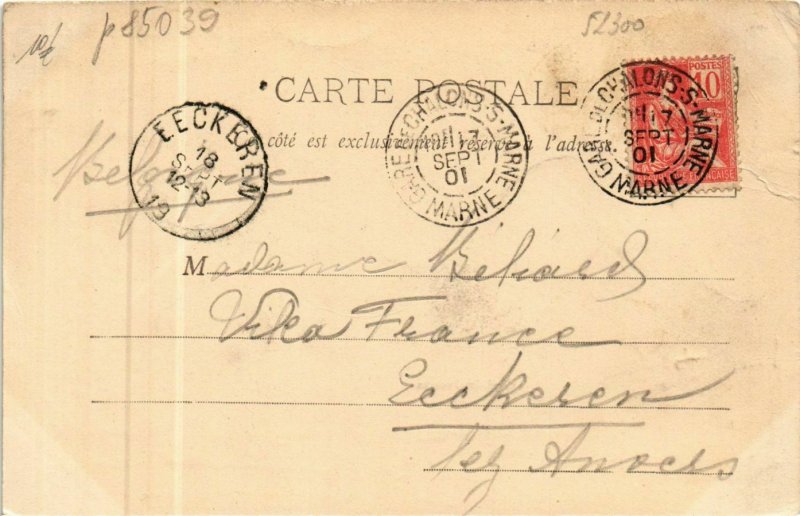 p85039
51300
CARTE POSTALE
Ce côté est exclusivement réservé à l'adresse.
EECKEREN
18
SEPT
12-13
GARE DE CHALONS-S-MARNE
17
SEPT
01
MARNE
GARE DE CHALONS-S-MARNE
17
SEPT
01
MARNE
POSTES
10
FRANÇAISE
Belgique
Madame Béliard
Villa France
Eeckeren
lez Anvers